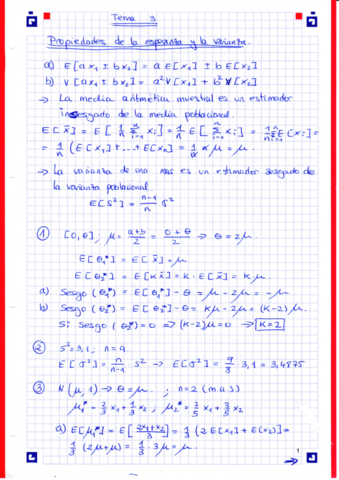 Tema 3
Propiedades de la esperanza y la varianza.
a) E[ax₁ ± bx₂] = a E[x₁] ± b E[x₂]
b) V[ax₁ ± bx₂] = a² V[x₁] + b² V[x₂]
→ La media aritmética muestral es un estimador
insesgado de la media poblacional.
E[x̄] = E[1/n Σᵢ₌₁ⁿ xᵢ] = 1/n E[Σᵢ₌₁ⁿ xᵢ] = 1/n Σᵢ₌₁ⁿ E[xᵢ] =
= 1/n (E[x₁] + ... + E[xₙ]) = 1/n n μ = μ.
→ La varianza de una mas es un estimador sesgado de
la varianza poblacional
E[S²] = n-1/n σ²
① [0, θ], μ = a+b/2 = 0+θ/2 → θ = 2μ.
E[θ₁*] = E[x̄] = μ
E[θ₂*] = E[K x̄] = K · E[x̄] = Kμ.
a) Sesgo (θ₁*) = E[θ₁*] - θ = μ - 2μ = -μ
b) Sesgo (θ₂*) = E[θ₂*] - θ = Kμ - 2μ = (K-2)μ.
Si sesgo (θ₂*) = 0 ⇒ (K-2)μ = 0 → K = 2
② S² = 3,1 ; n = 9
E[σ²] = n/n-1 S² → E[σ²] = 9/8 3,1 = 3,4875
③ N(μ, 1) → θ = μ. ; n = 2 (m.a.s)
μ₁* = 2/3 x₁ + 1/3 x₂ ; μ₂* = 2/5 x₁ + 3/5 x₂
a) E[μ₁*] = E[2x₁+x₂/3] = 1/3 (2 E[x₁] + E[x₂]) =
1/3 (2μ + μ) = 1/3 3μ = μ.
1